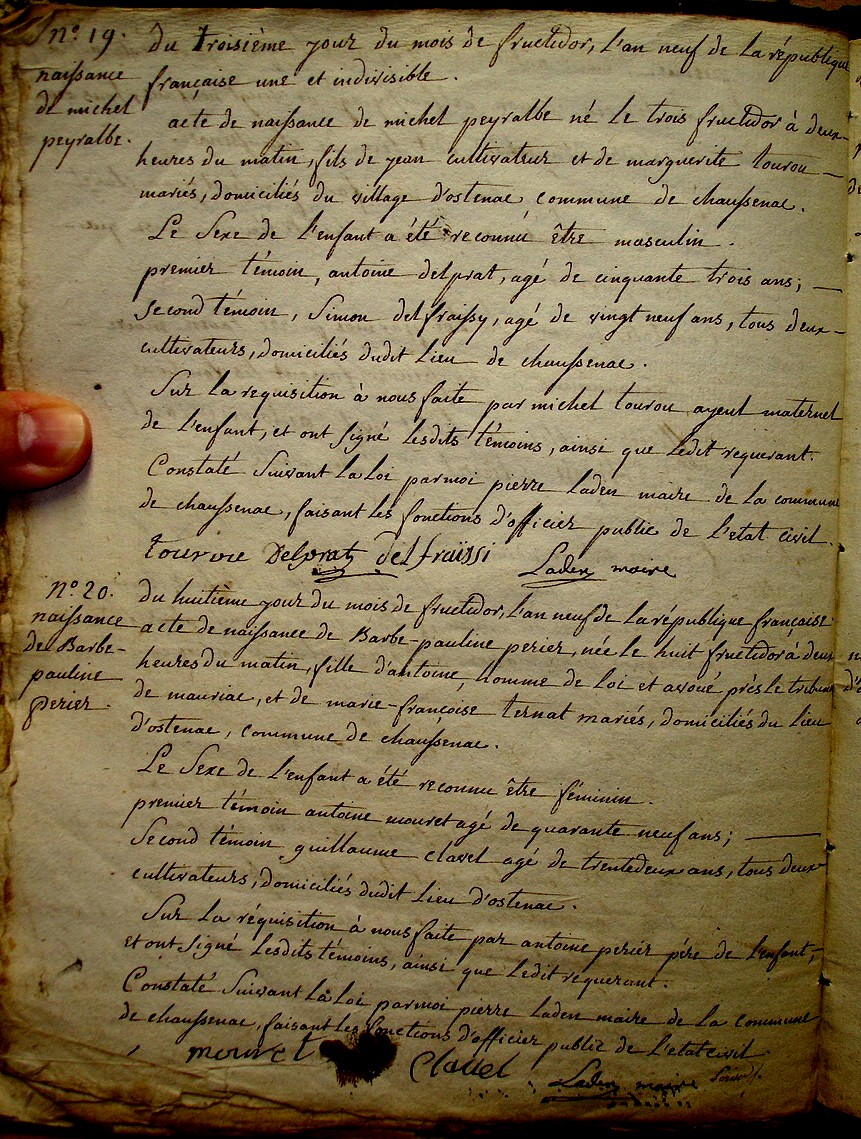 N.º 19.
naissance
de michel
peyralbe.
du troisième jour du mois de fructidor, l'an neuf de la république
française une et indivisible.
acte de naissance de michel peyralbe né le trois fructidor à deux
heures du matin, fils de jean cultivateur et de marguerite tourou
mariés, domiciliés du village d'ostenac commune de chaussenac.
Le Sexe de l'enfant a été reconnu être masculin.
premier témoin, antoine delprat, agé de cinquante trois ans;
Second témoin, Simon delfraissy, agé de vingt neuf ans, tous deux
cultivateurs, domiciliés dudit Lieu de chaussenac.
Sur la requisition à nous faite par michel tourou ayeul maternel
de l'enfant, et ont signé lesdits témoins, ainsi que ledit requerant.
Constaté Suivant la loi par moi pierre laden maire de la commune
de chaussenac, faisant les fonctions d'officier public de l'etat civil.
tourou Delprat delfraissi Laden maire
N.º 20.
naissance
de Barbe-
pauline
perier.
du huitième jour du mois de fructidor, l'an neuf de la république française
acte de naissance de Barbe-pauline perier, née le huit fructidor à deux
heures du matin, fille d'antoine, homme de loi et avoué près le tribunal
de mauriac, et de marie-françoise ternat mariés, domiciliés du lieu
d'ostenac, commune de chaussenac.
Le Sexe de l'enfant a été reconnu être féminin.
premier témoin antoine mouret agé de quarante neuf ans;
Second témoin guillaume clavel agé de trente deux ans, tous deux
cultivateurs, domiciliés dudit Lieu d'ostenac.
Sur La réquisition à nous faite par antoine perier père de l'enfant,
et ont Signé Lesdits témoins, ainsi que ledit requerant.
Constaté Suivant la Loi par moi pierre laden maire de la commune
de chaussenac, faisant les fonctions d'officier public de l'etat civil
mouret Clavel Laden maire